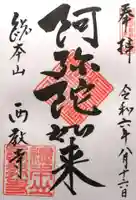 奉拝
令和二年八月十六日
阿弥陀如来
総本山
西教寺